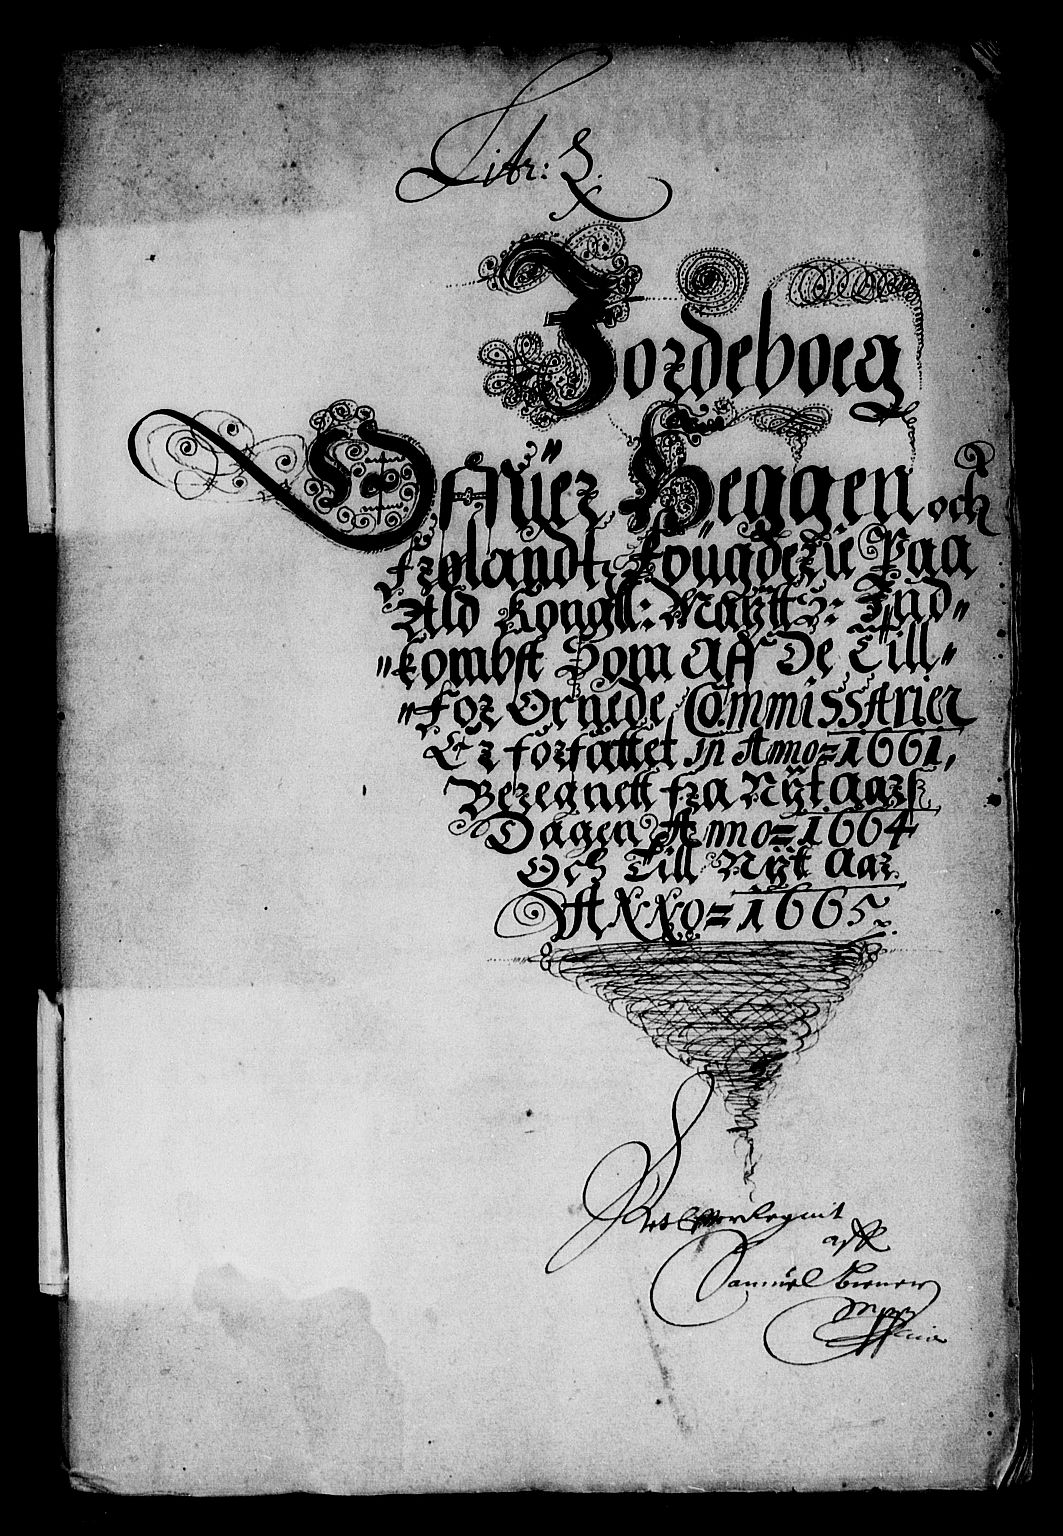 Litr: S.
Jordeboeg
Offuer Heggen och
Frølandt, Fougderie Paa
Ald Kongll: Maÿtt3: Ind„
„kombst Som Aff De Till„
„For Ornede Commissarier
Er forfattet in Anno=1661,
Beregnett fra Nÿt Aars
Dagen Anno=1664
Och Till Nÿt Aar
Anno=1665.
aff
Samuel
mpp